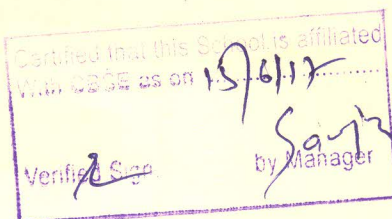 Certified that this School is affiliated
With CBSE as on 13/6/17
Verified Sign. by Manager